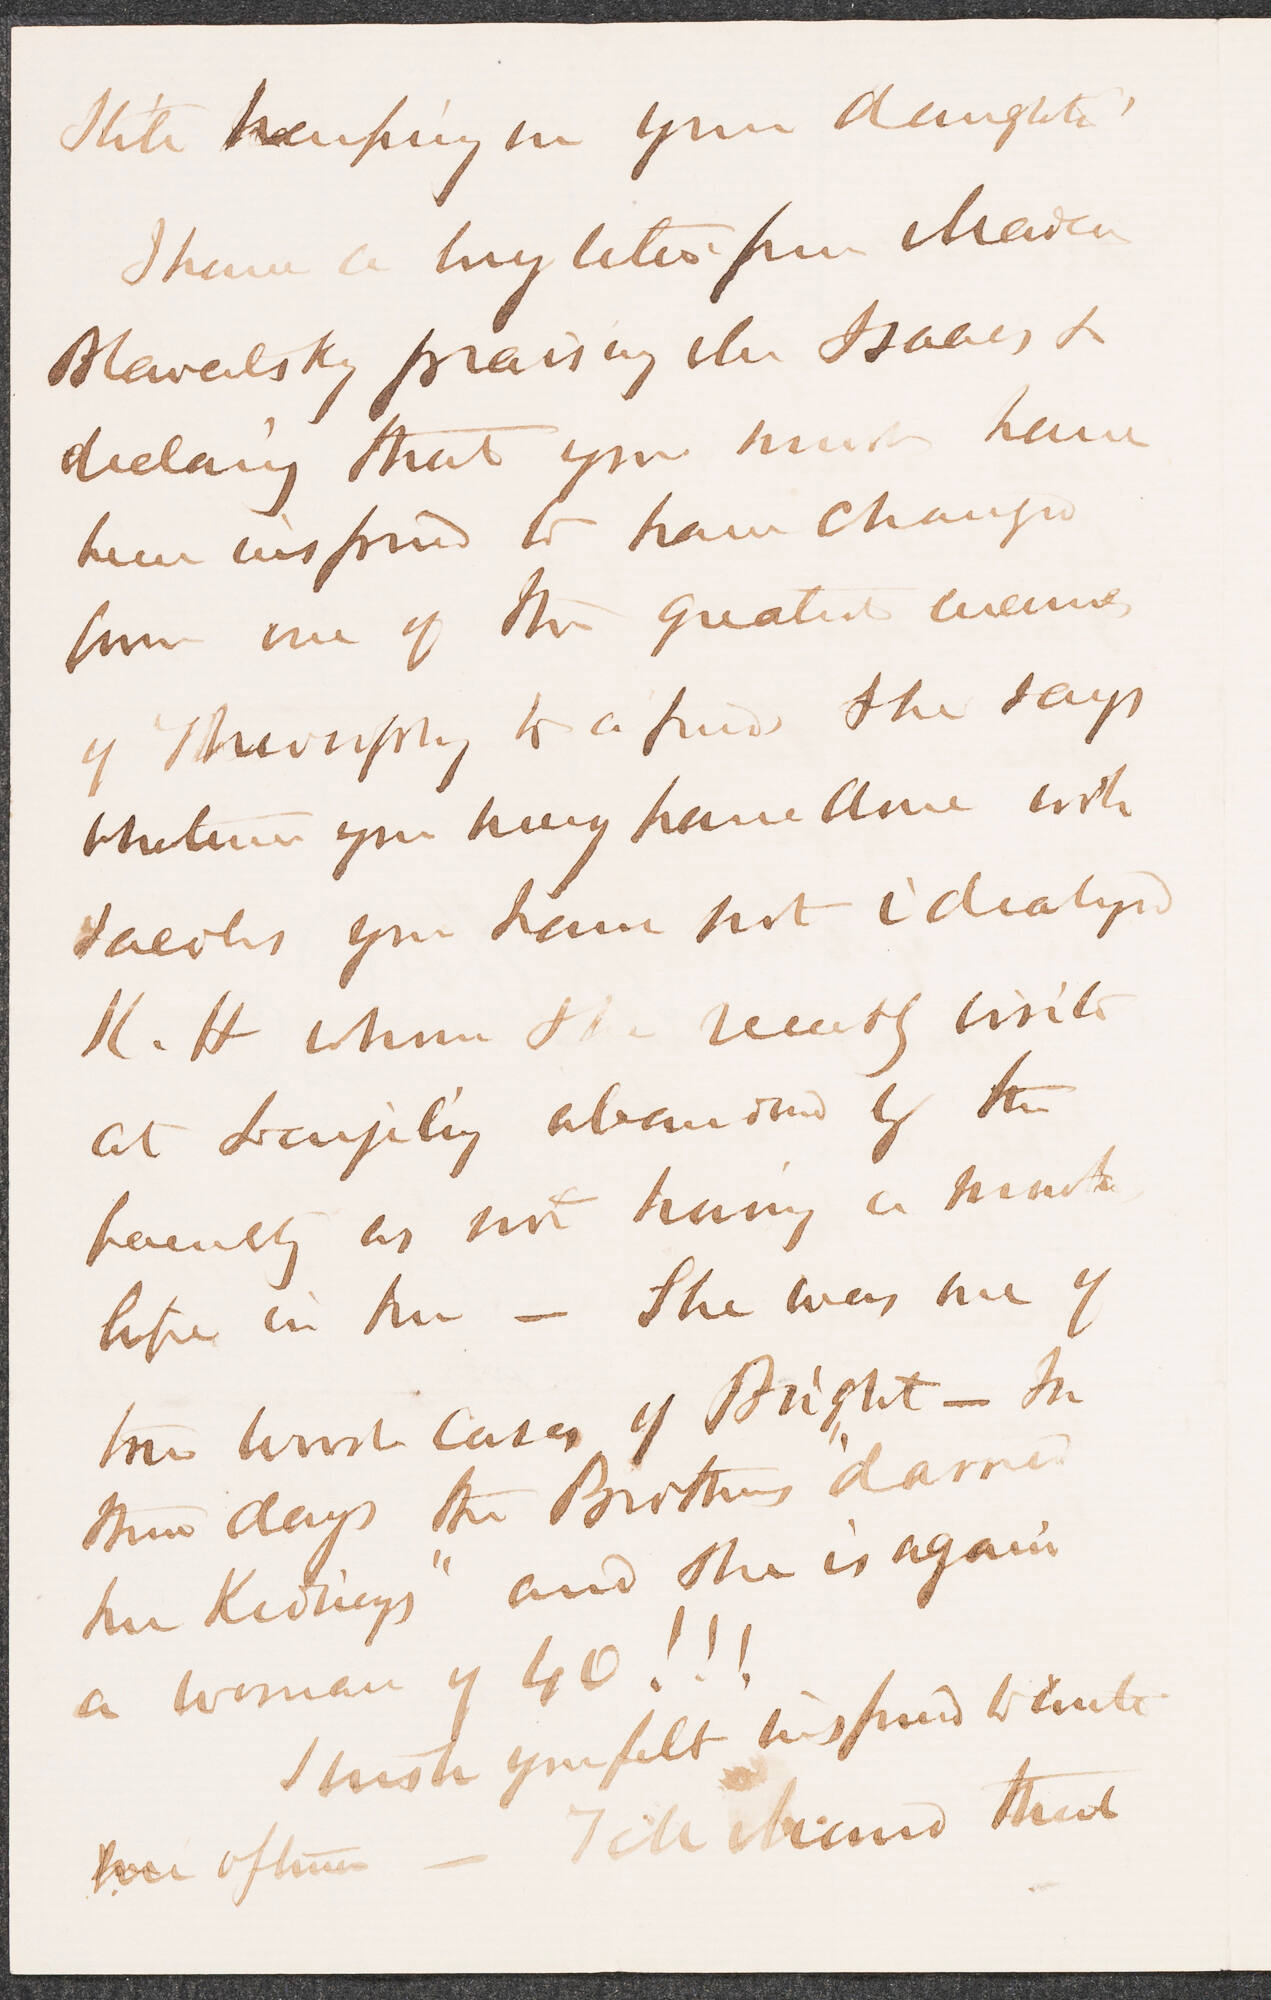 still harping on your daughter'
I have a long letter from Madam
Blavatsky praising Mr Isaacs &
declaring that you must have
been inspired to have changed
from one of the greatest enemies
of Theosophy to a friend She says
whatever you may have done with
Jacobs you have not idealized
K. H whom she recently visited
at abandoned by the
faculty as not having a months
life in her — She was one of
the worst cases of Bright — In
three days the Brothers "darned
her Kidneys" and she is again
a woman of 40!!!
I wish you felt inspired to write
me oftener — Tell that